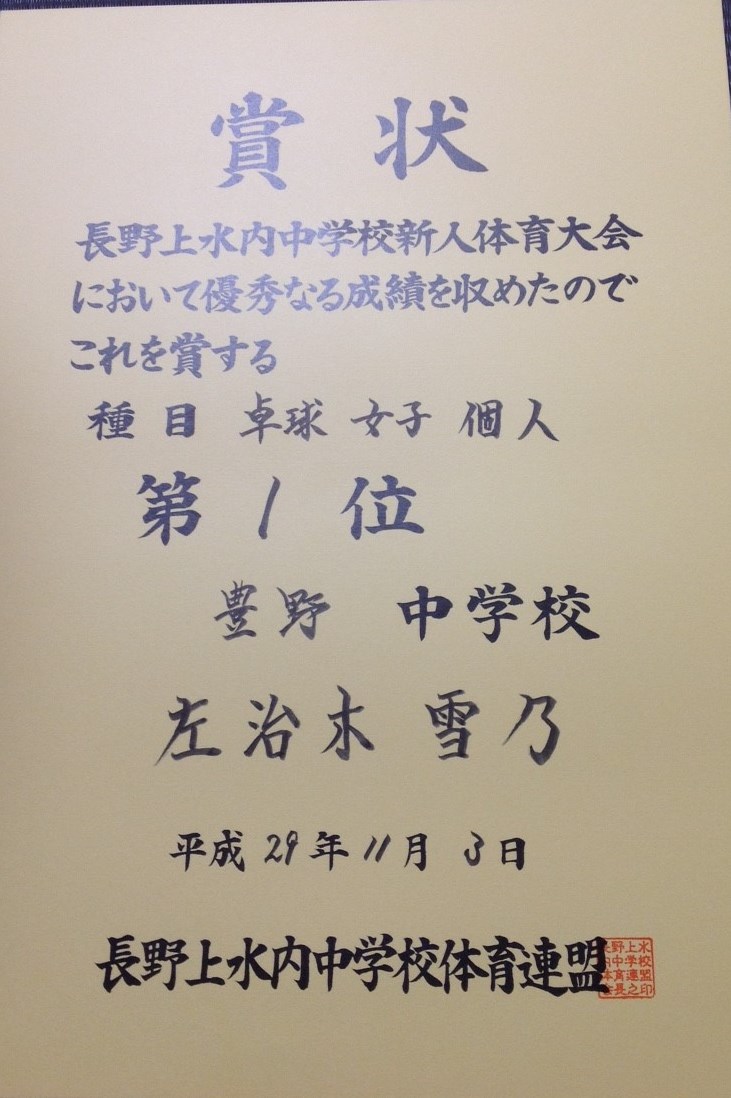 賞状
長野上水内中学校新人体育大会
において優秀なる成績を収めたので
これを賞する
種目 卓球 女子 個人
第1位
豊野 中学校
左治木 雪乃
平成29年11月3日
長野上水内中学校体育連盟
長野上水
内中学校
体育連盟
会長之印